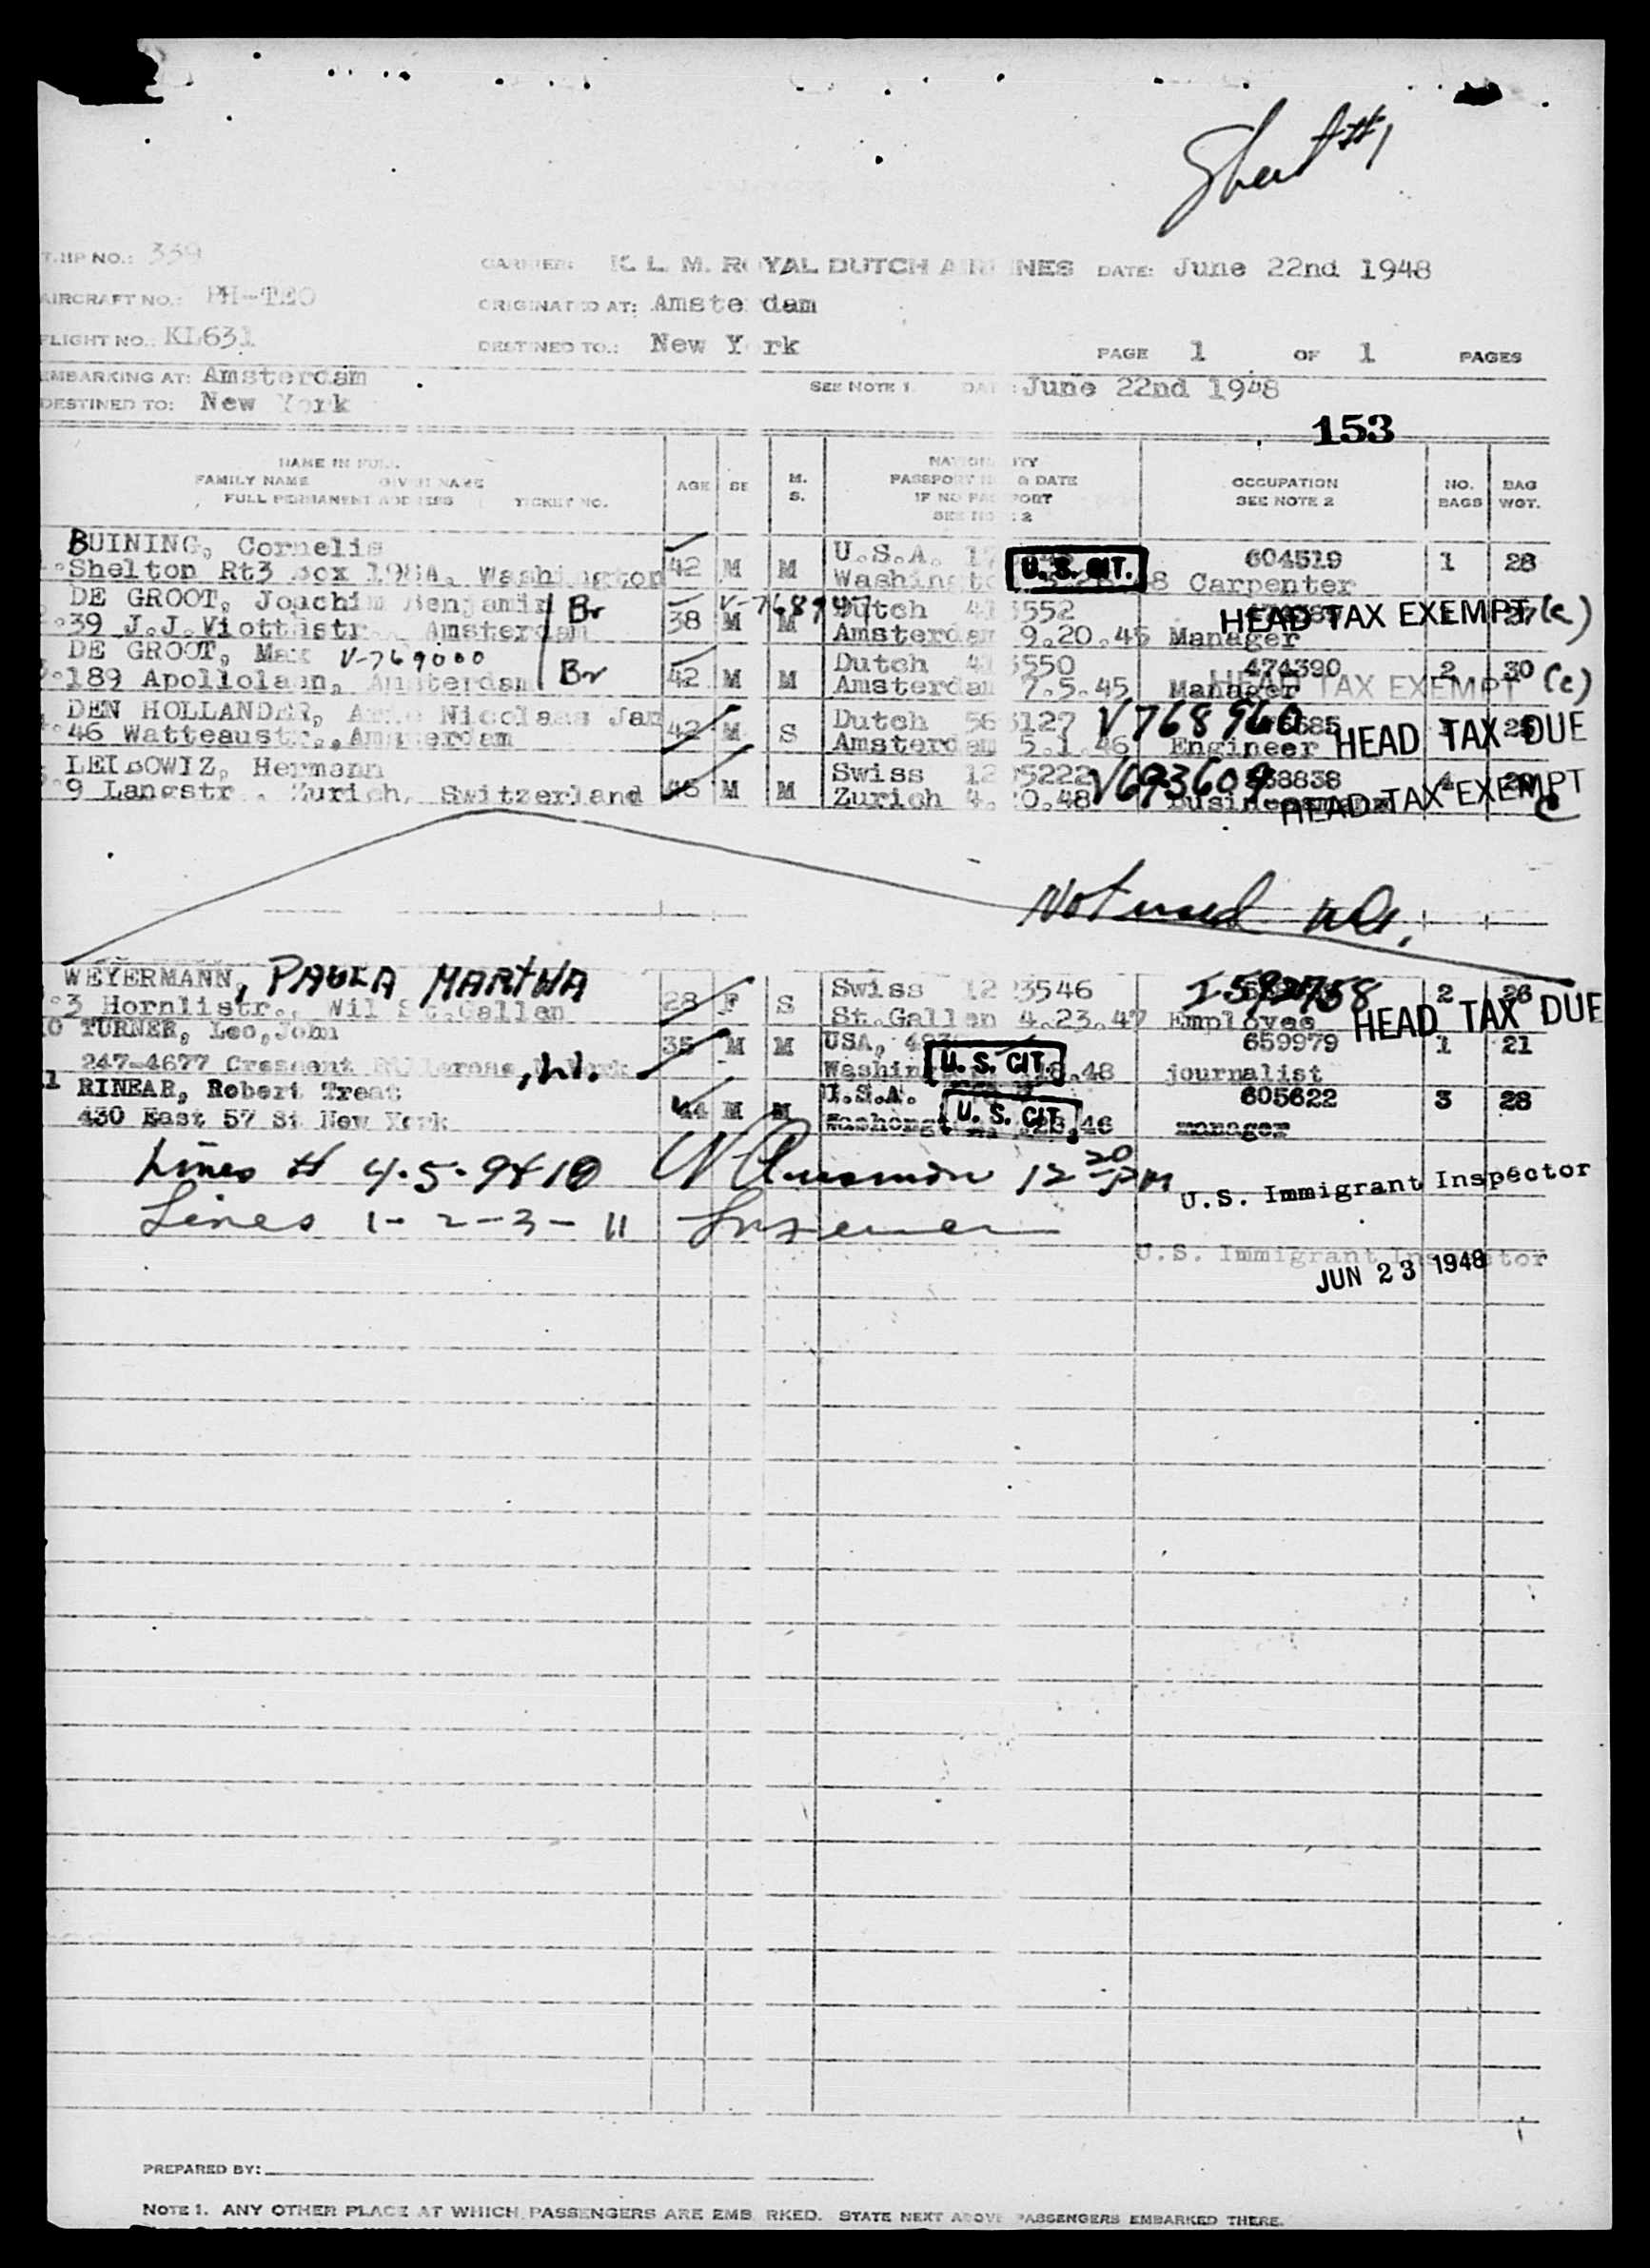 Sheet #1
TRIP NO.: 339 CARRIER: K. L. M. ROYAL DUTCH AIRLINES DATE: June 22nd 1948
AIRCRAFT NO.: PH-TEO ORIGINATED AT: Amsterdam
FLIGHT NO.: KL631 DESTINED TO.: New York PAGE 1 OF 1 PAGES
EMBARKING AT: Amsterdam SEE NOTE 1. DATE: June 22nd 1948
DESTINED TO: New York
153
NAME IN FULL
FAMILY NAME GIVEN NAME
FULL PERMANENT ADDRESS TICKET NO.
AGE SE M. S.
NATIONALITY
PASSPORT NO. & DATE
IF NO PASSPORT
SEE NOTE 2
OCCUPATION
SEE NOTE 2
NO. BAGS
BAG WGT.
BUINING, Cornelis 42 M M U.S.A. U.S. CIT. 604519 1 28
Shelton Rt3 box Washington Washington Carpenter
DE GROOT, Joachim Benjamin Br 38 M V-768947 M Dutch 552 HEAD TAX EXEMPT (c)
39 J.J.Viottastr. Amsterdam Amsterdam 9.20.45 Manager
DE GROOT, Max V-769000 Br 42 M M Dutch 550 474390 2 30
189 Apollolaan, Amsterdam Amsterdam 7.5.45 Manager HEAD TAX EXEMPT (c)
DEN HOLLANDER, Nicolaas Jan 42 M S Dutch 56 127 V768960
46 Watteaustr., Amsterdam Amsterdam 5.1.46 Engineer HEAD TAX DUE
LEIBOWIZ, Hermann M M Swiss 12 5222 V693609 4
9 Langstr. Zurich, Switzerland Zurich 4. 0.48 Businessman HEAD TAX EXEMPT C
Not used
WEYERMANN, PAULA MARTHA 28 F S Swiss 12 3546 I592758 2 26
3 Hornlistr., Wil St.Gallen St.Gallen 4.23.47 Employee HEAD TAX DUE
10 TURNER, Leo,John 35 M M USA, U. S. CIT. 659979 1 21
247-4677 Crescent journalist
11 RINEAR, Robert Treat 44 M M U.S.A. U. S. CIT. 605622 3 28
430 East 57 St New York manager
Lines # 4-5-9&10 12 20 PM U.S. Immigrant Inspector
Lines 1-2-3-11
U.S. Immigrant Inspector
JUN 23 1948
PREPARED BY:
NOTE 1. ANY OTHER PLACE AT WHICH PASSENGERS ARE EMB RKED. STATE NEXT ABOVE PASSENGERS EMBARKED THERE.